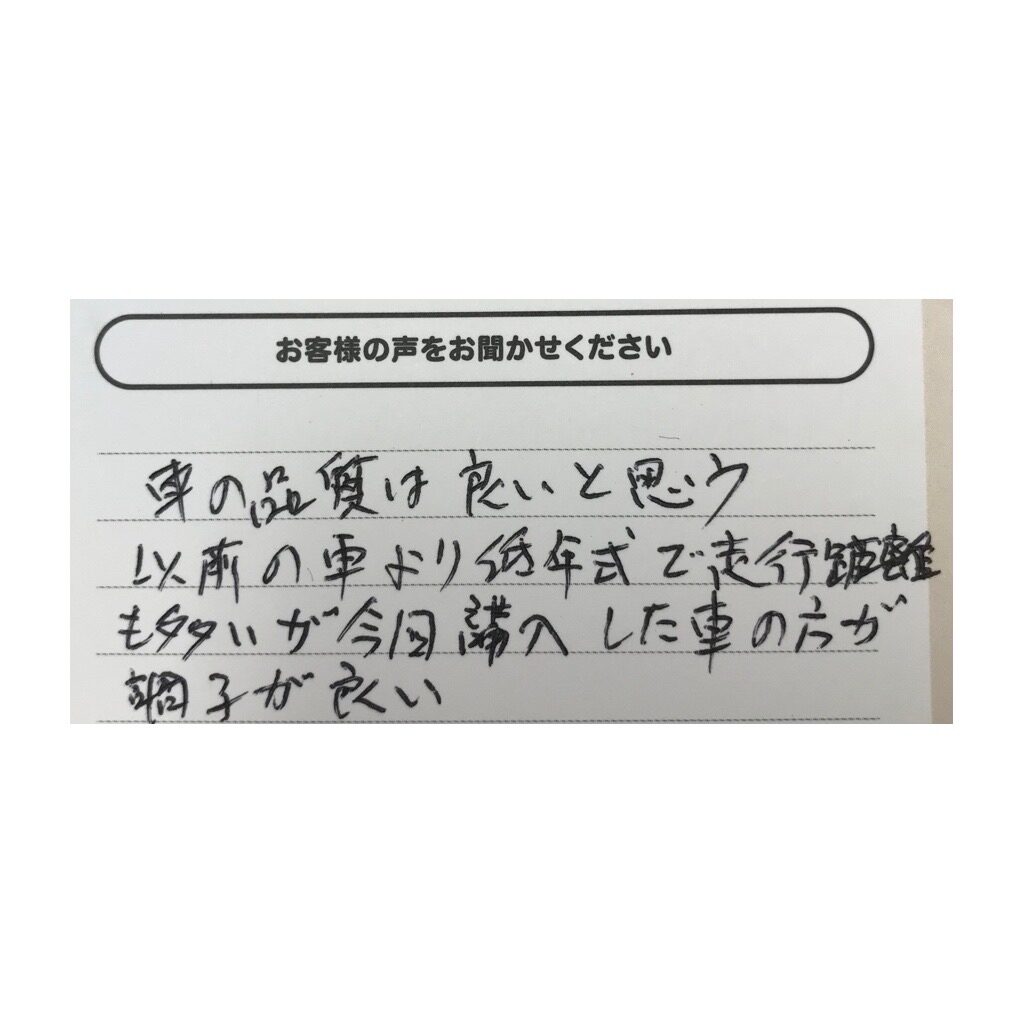 お客様の声をお聞かせください
車の品質は良いと思う
以前の車より低年式で走行距離
も多いが今回購入した車の方が
調子が良い